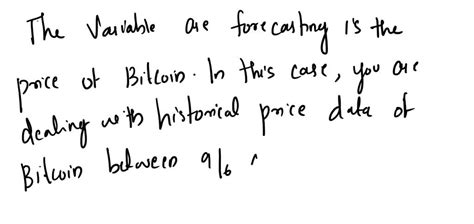 The Variable are forecasting is the
price of Bitcoin. In this case, you are
dealing with historical price data of
Bitcoin between 9/6